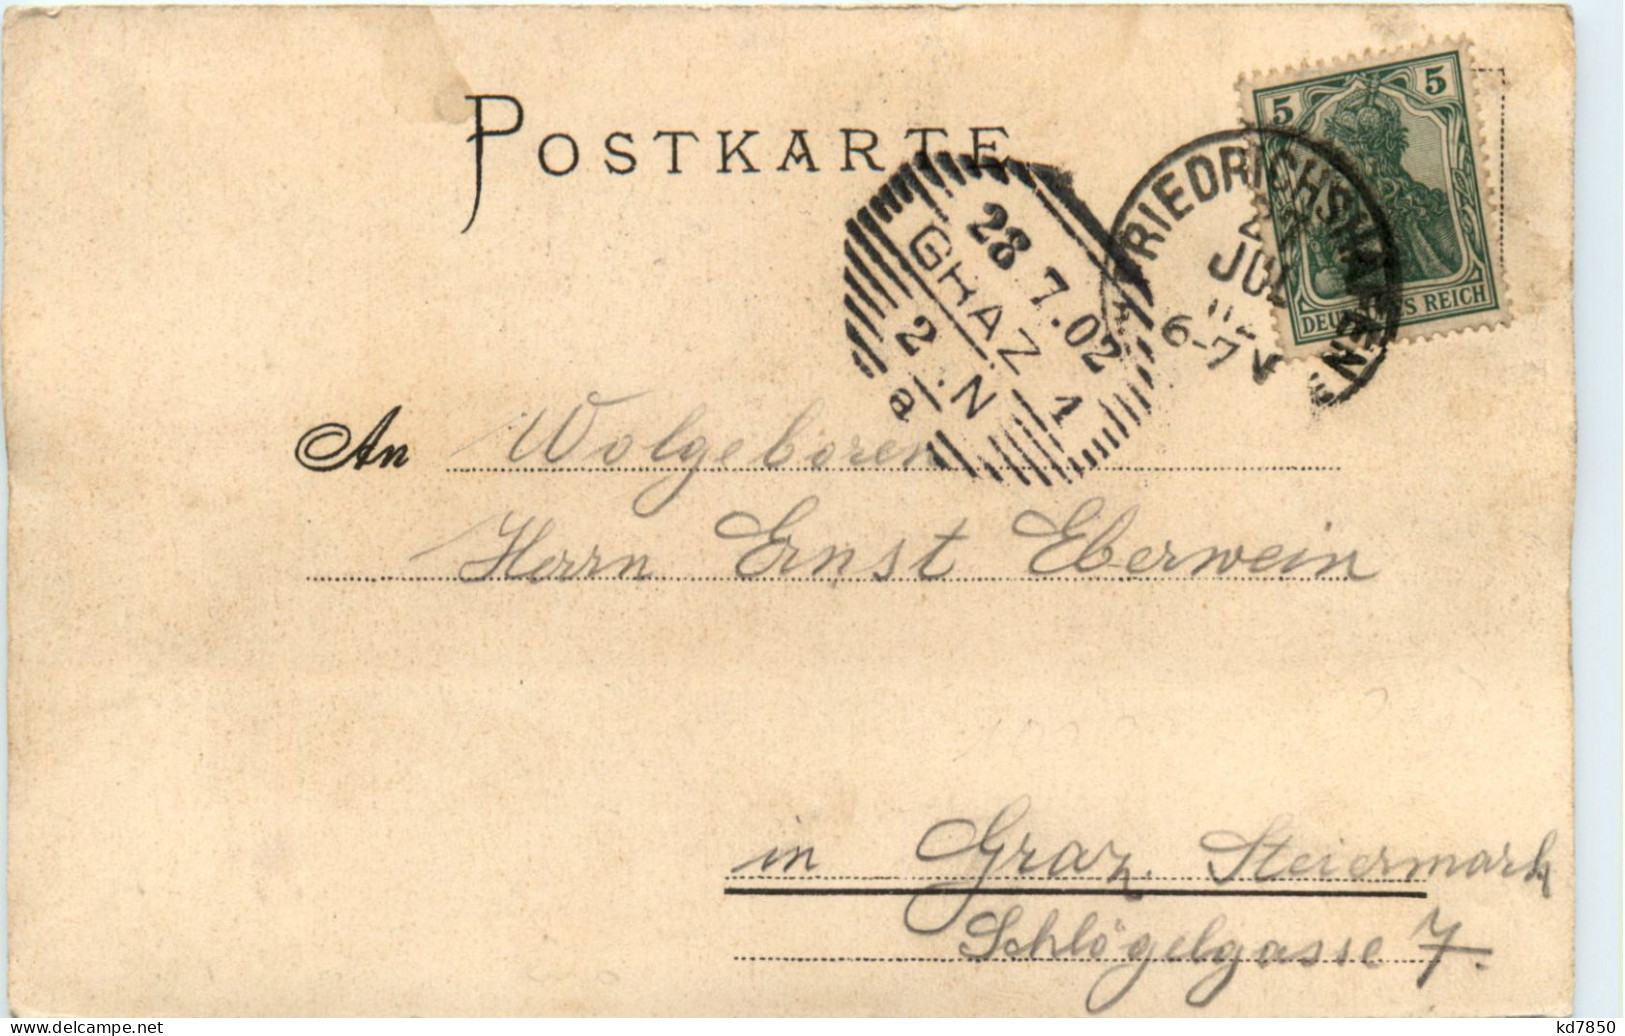 POSTKARTE
5 5
DEUTSCHES REICH
FRIEDRICHSHAFEN
27
JUL
02
6-7 V
28 7.02
GRAZ 1
2.N
a
An Wolgeboren
Herrn Ernst Eberwein
in Graz. Steiermark
Schlögelgasse 7.
kd7850